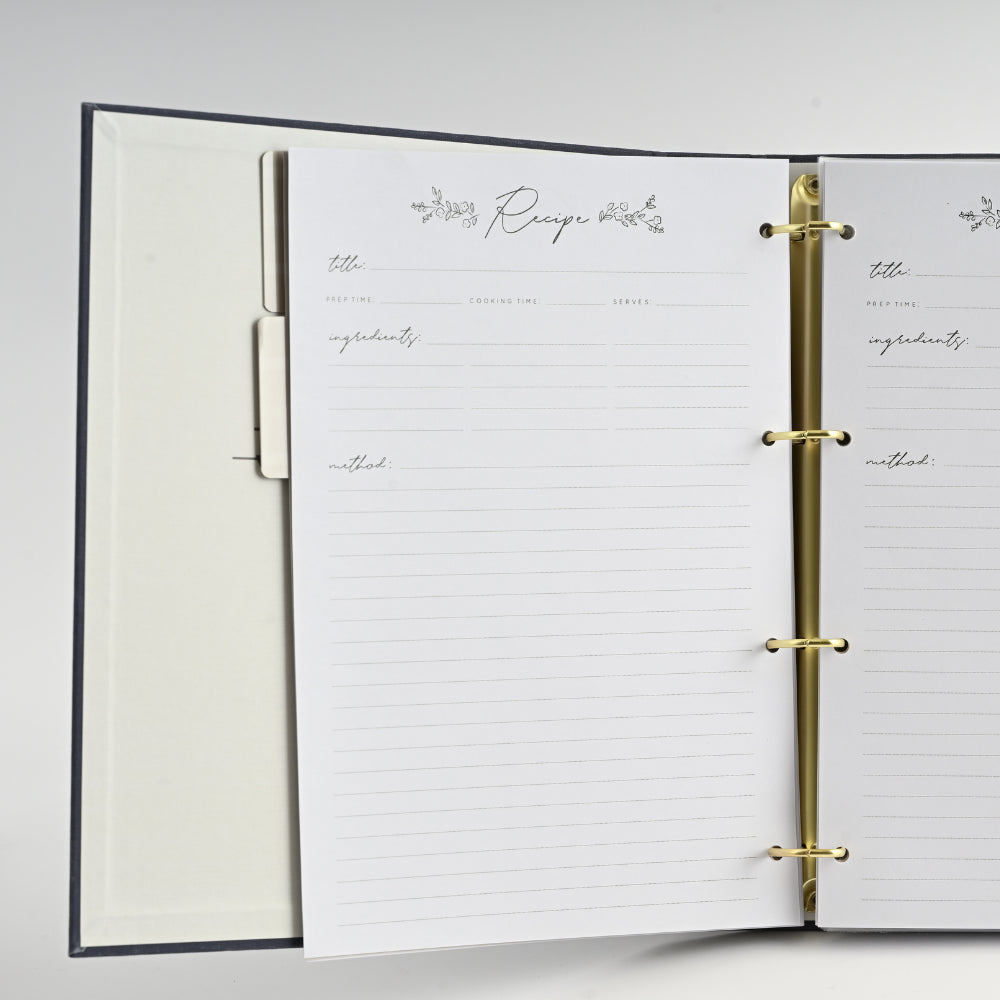 Recipe
title:
PREP TIME: COOKING TIME: SERVES:
ingredients:
method:
title:
PREP TIME:
ingredients:
method: